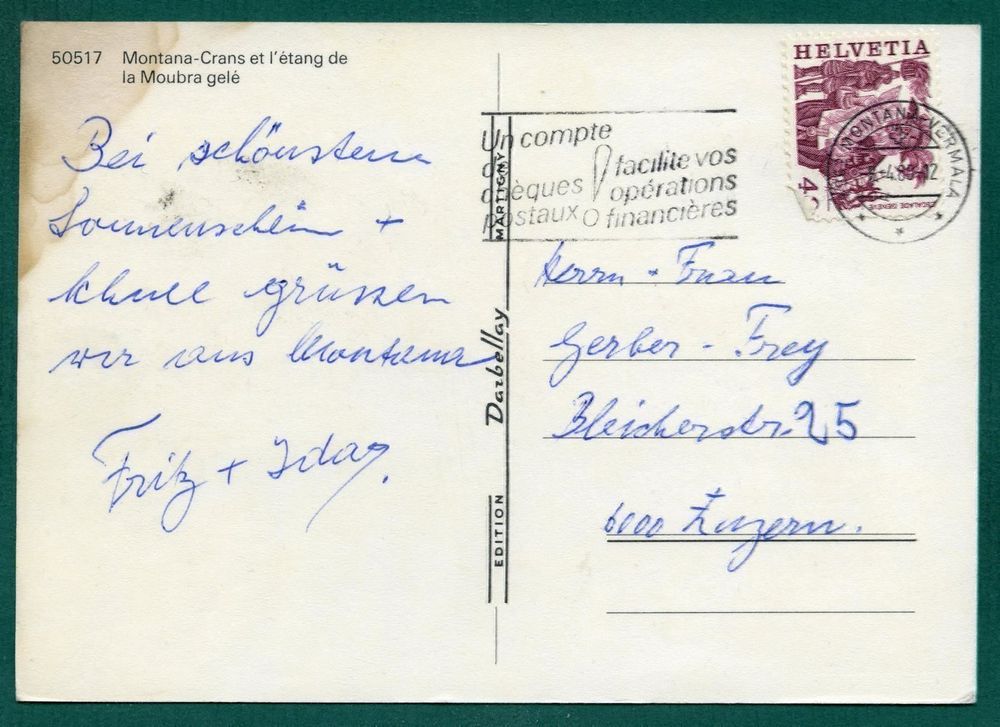 50517 Montana-Crans et l'étang de
la Moubra gelé
Bei schönstem
Sonnenschein +
Schnee grüssen
wir aus Montana
Fritz + Idag.
EDITION Darbellay MARTIGNY
Un compte
de
chèques
postaux
facilite vos
opérations
financières
HELVETIA
ESCALADE GENÈVE
MONTANA-VERMALA
Herrn + Frau
Gerber - Frey
Bleicherstr. 25
6000 Luzern.